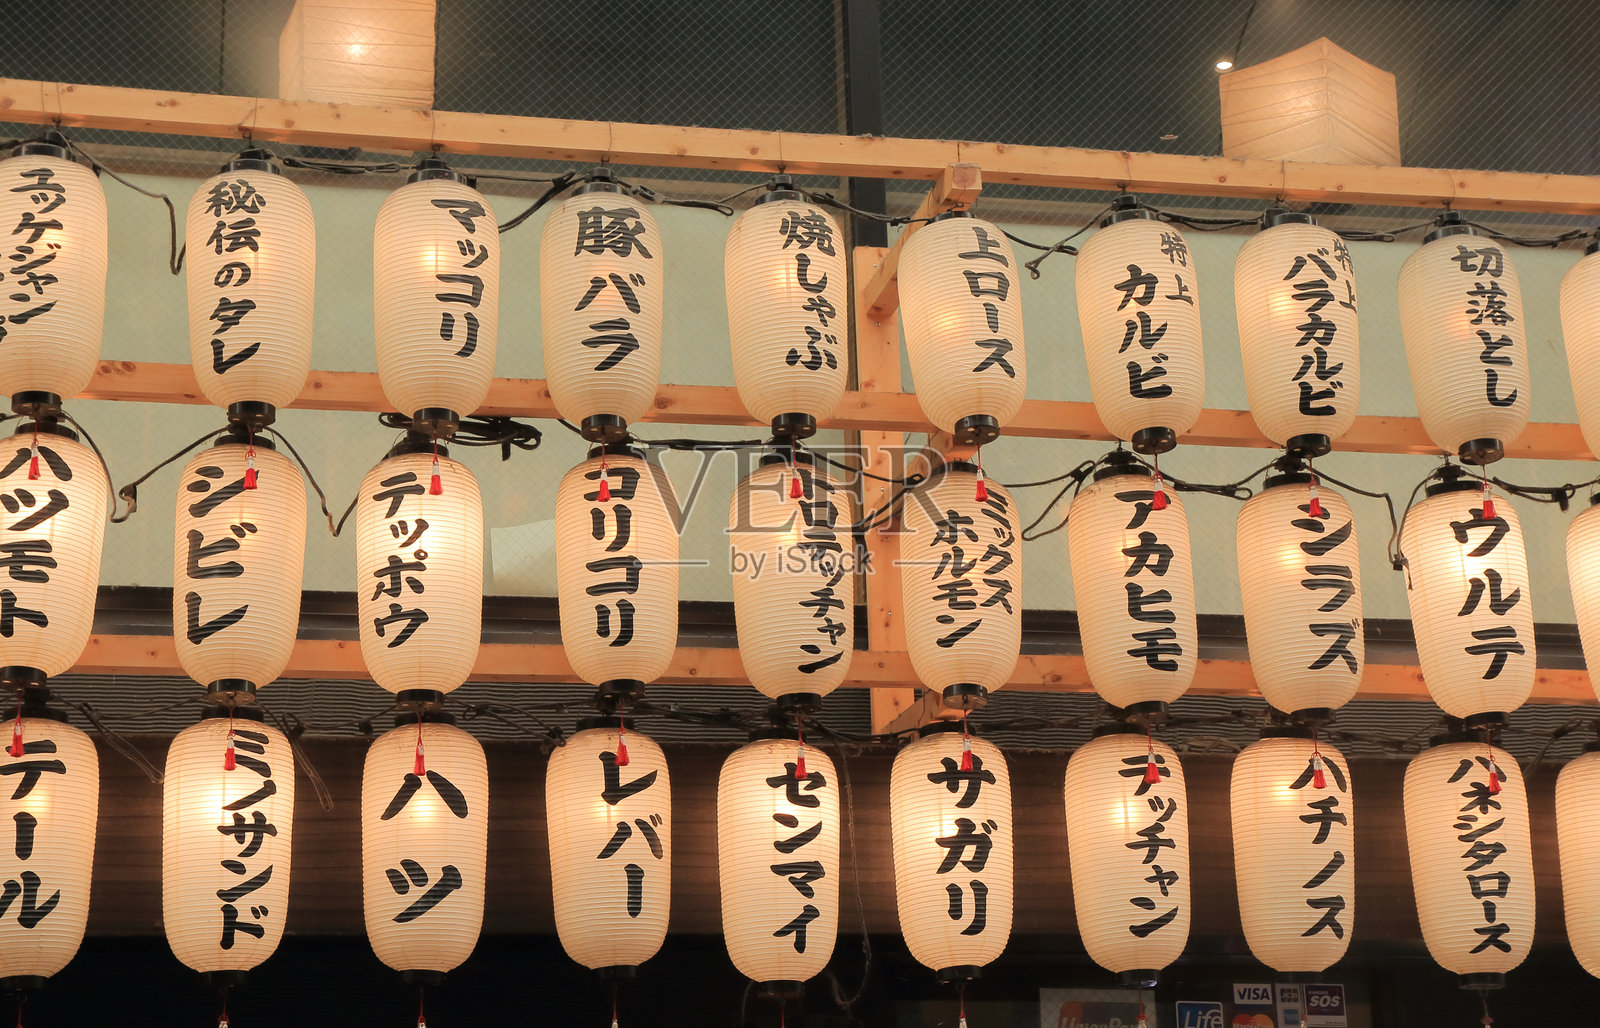 ユッケジャン
秘伝のタレ
マッコリ
豚バラ
焼しゃぶ
上ロース
特上
カルビ
特上
バラカルビ
切落とし
ハツモト
シビレ
テッポウ
コリコリ
トロテッチャン
ミックス
ホルモン
アカヒモ
シラズ
ウルテ
テール
ミノサンド
ハツ
レバー
センマイ
サガリ
テッチャン
ハチノス
ハネシタロース
VEER
by iStock
VISA
JCB
SOS
Life
UnionPay
MasterCard